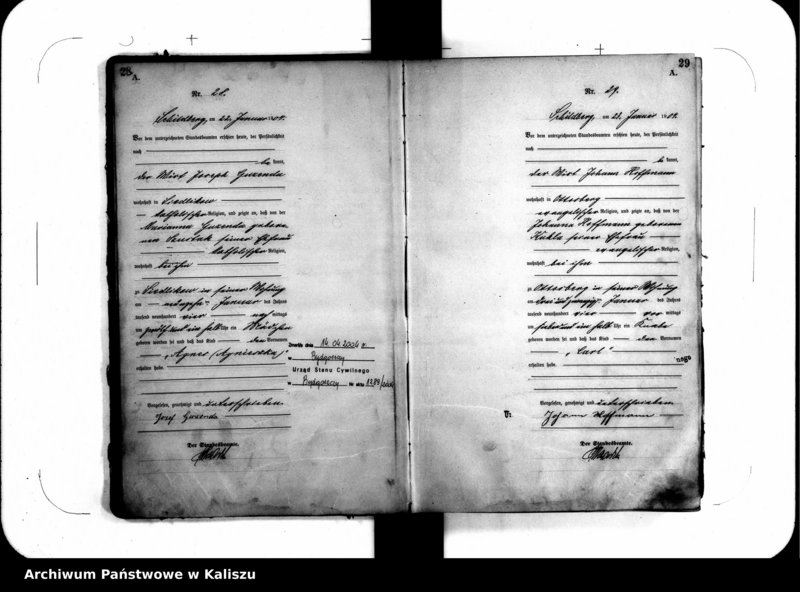 28
A.
Nr. 28.
Schildberg, am 22. Januar 1904.
Vor dem unterzeichneten Standesbeamten erschien heute, der Persönlichkeit
nach
be kannt,
der Wirt Joseph Guzenda
wohnhaft in Siedlikow
katholischer Religion, und zeigte an, daß von der
Marianna Guzenda geborenen
seiner Ehefrau
katholischer Religion,
wohnhaft bei ihm
zu Siedlikow in seiner Wohnung
am Januar des Jahres
tausend neunhundert vier nach mittags
um ein halb Uhr ein Mädchen
geboren worden sei und daß das Kind den Vornamen
„Agnes (Agnieszka)“
erhalten habe.
Vorgelesen, genehmigt und unterschrieben
Józef Guzenda
Der Standesbeamte.
Zmarła dnia 14.04.2004 r.
w Bydgoszczy
Urząd Stanu Cywilnego
w Bydgoszczy Nr aktu
29
A.
Nr. 29.
Schildberg, am 23. Januar 1904.
Vor dem unterzeichneten Standesbeamten erschien heute, der Persönlichkeit
nach
be kannt,
der Wirt Johann Hoffmann
wohnhaft in Otterberg
evangelischer Religion, und zeigte an, daß von der
Johanna Hoffmann geborenen
Kukla seiner Ehefrau
evangelischer Religion,
wohnhaft bei ihm
zu Otterberg in seiner Wohnung
am Januar des Jahres
tausend neunhundert vier vor mittags
um sieben und ein halb Uhr ein Knabe
geboren worden sei und daß das Kind den Vornamen
„Carl“
erhalten habe.
Vorgelesen, genehmigt und unterschrieben
Johann Hoffmann
Der Standesbeamte.
Archiwum Państwowe w Kaliszu